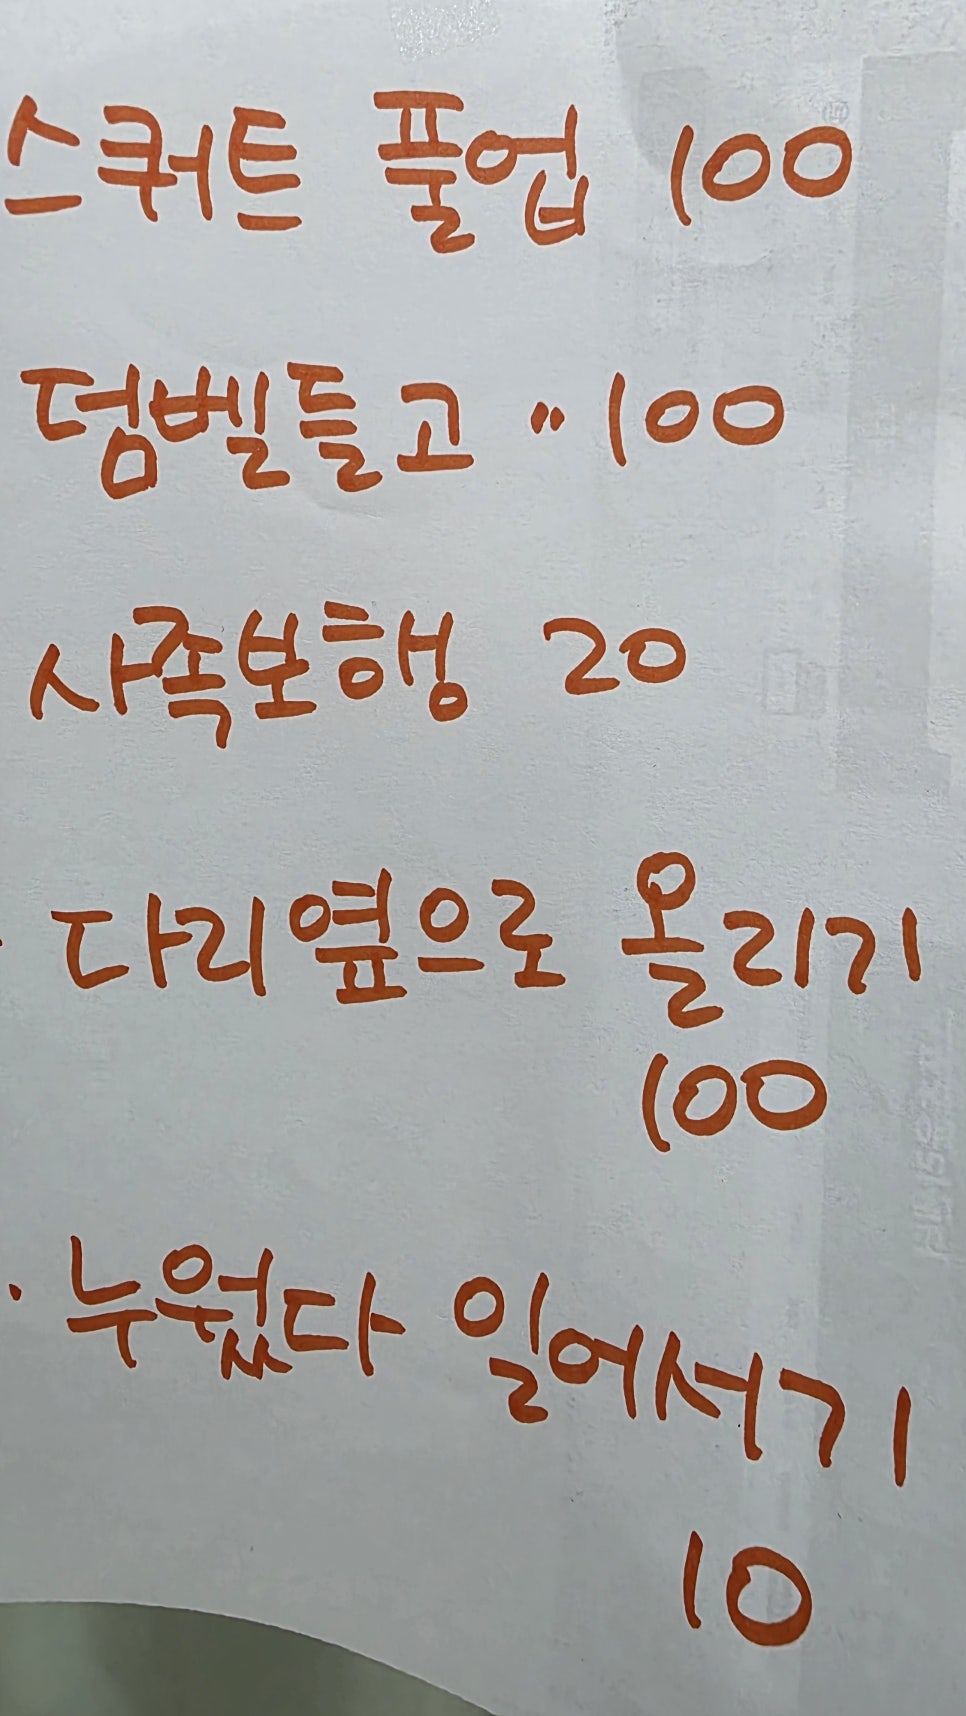 스쿼트 풀업 100
덤벨들고 〃 100
사족보행 20
· 다리옆으로 올리기
100
· 누웠다 일어서기
10